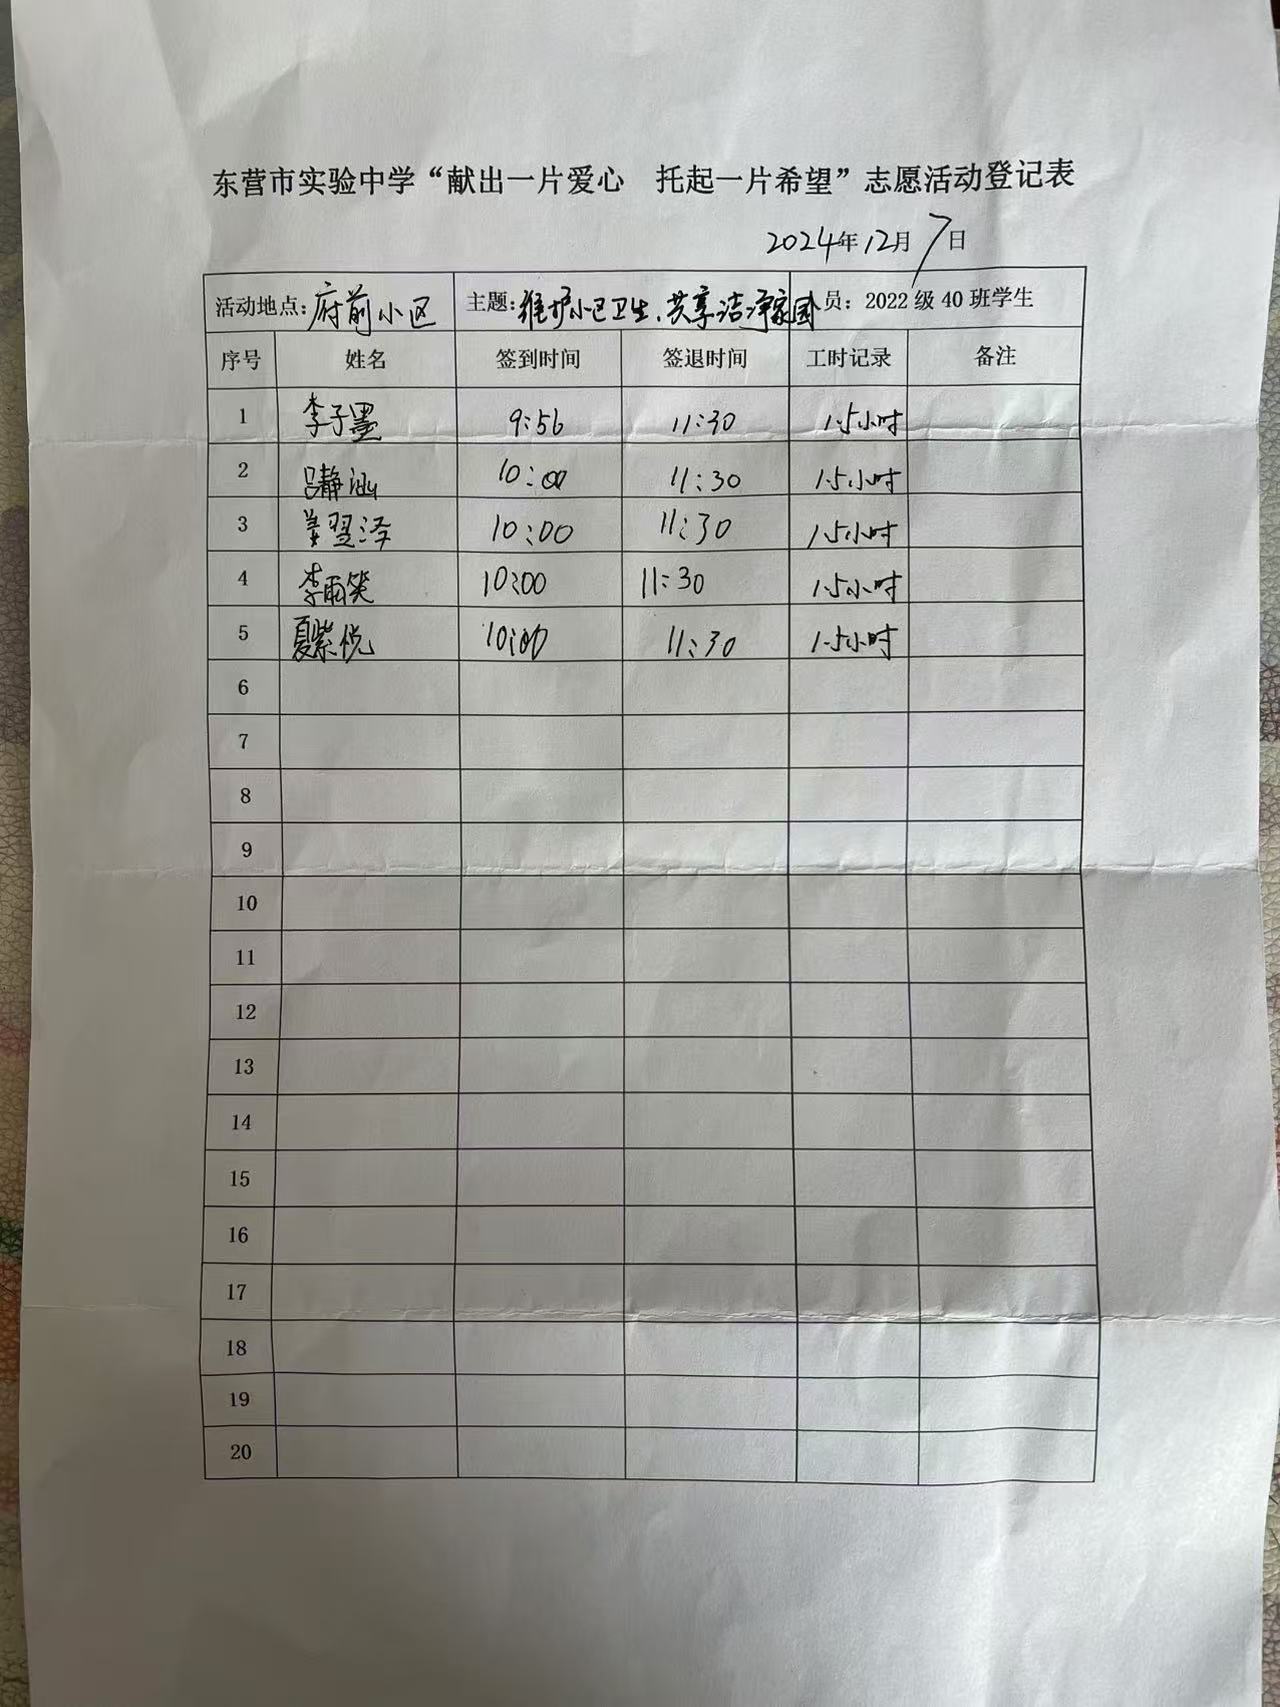 东营市实验中学“献出一片爱心　托起一片希望”志愿活动登记表
2024年12月7日
活动地点:府前小区 主题:维护小区卫生、共享洁净家园 员：2022级40班学生
序号 姓名 签到时间 签退时间 工时记录 备注
1 李子墨 9:56 11:30 1.5小时
2 吕静涵 10:00 11:30 1.5小时
3 姜翌泽 10:00 11:30 1.5小时
4 李雨笑 10:00 11:30 1.5小时
5 夏紫悦 10:00 11:30 1.5小时
6
7
8
9
10
11
12
13
14
15
16
17
18
19
20